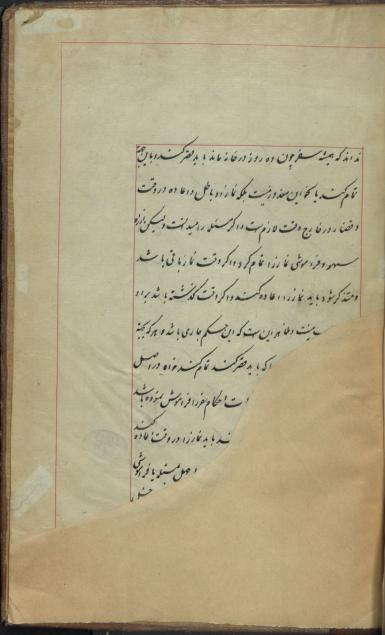 نداند که همیشه سفر چون ده روز در خانه ماند باید قصر کند و باین جهة
تمام کند یا نحو این معذور نیست بلکه نماز او باطل و اعاده در وقت
و قضا در خارج وقت لازمست و اگر مسئله را میدانست و لیکن از روی
سهو و فراموشی نماز را تمام کرد و اگر وقت نماز باقی باشد
و متذکر شود باید نماز را اعاده کند و اگر وقت گذشته باشد بر او
نیست و ظاهر این است که این حکم جاری باشد و هر که بجهة
که باید قصر کند تمام کند خواه در اصل
احکام سفر را فراموش نموده باشد
باید نماز را در وقت اعاده کند
اصل مسئله یا فراموشی